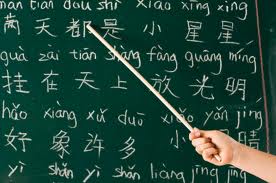 tiān dōu shì xiǎo xīng xīng
天都是 小星星
guà zài tiān shàng fàng guāng míng
挂在天上放光明
hǎo xiàng xǔ duō xiǎo yǎn jīng
好象许多 小
yì shǎn yì shǎn liàng jīng jīng